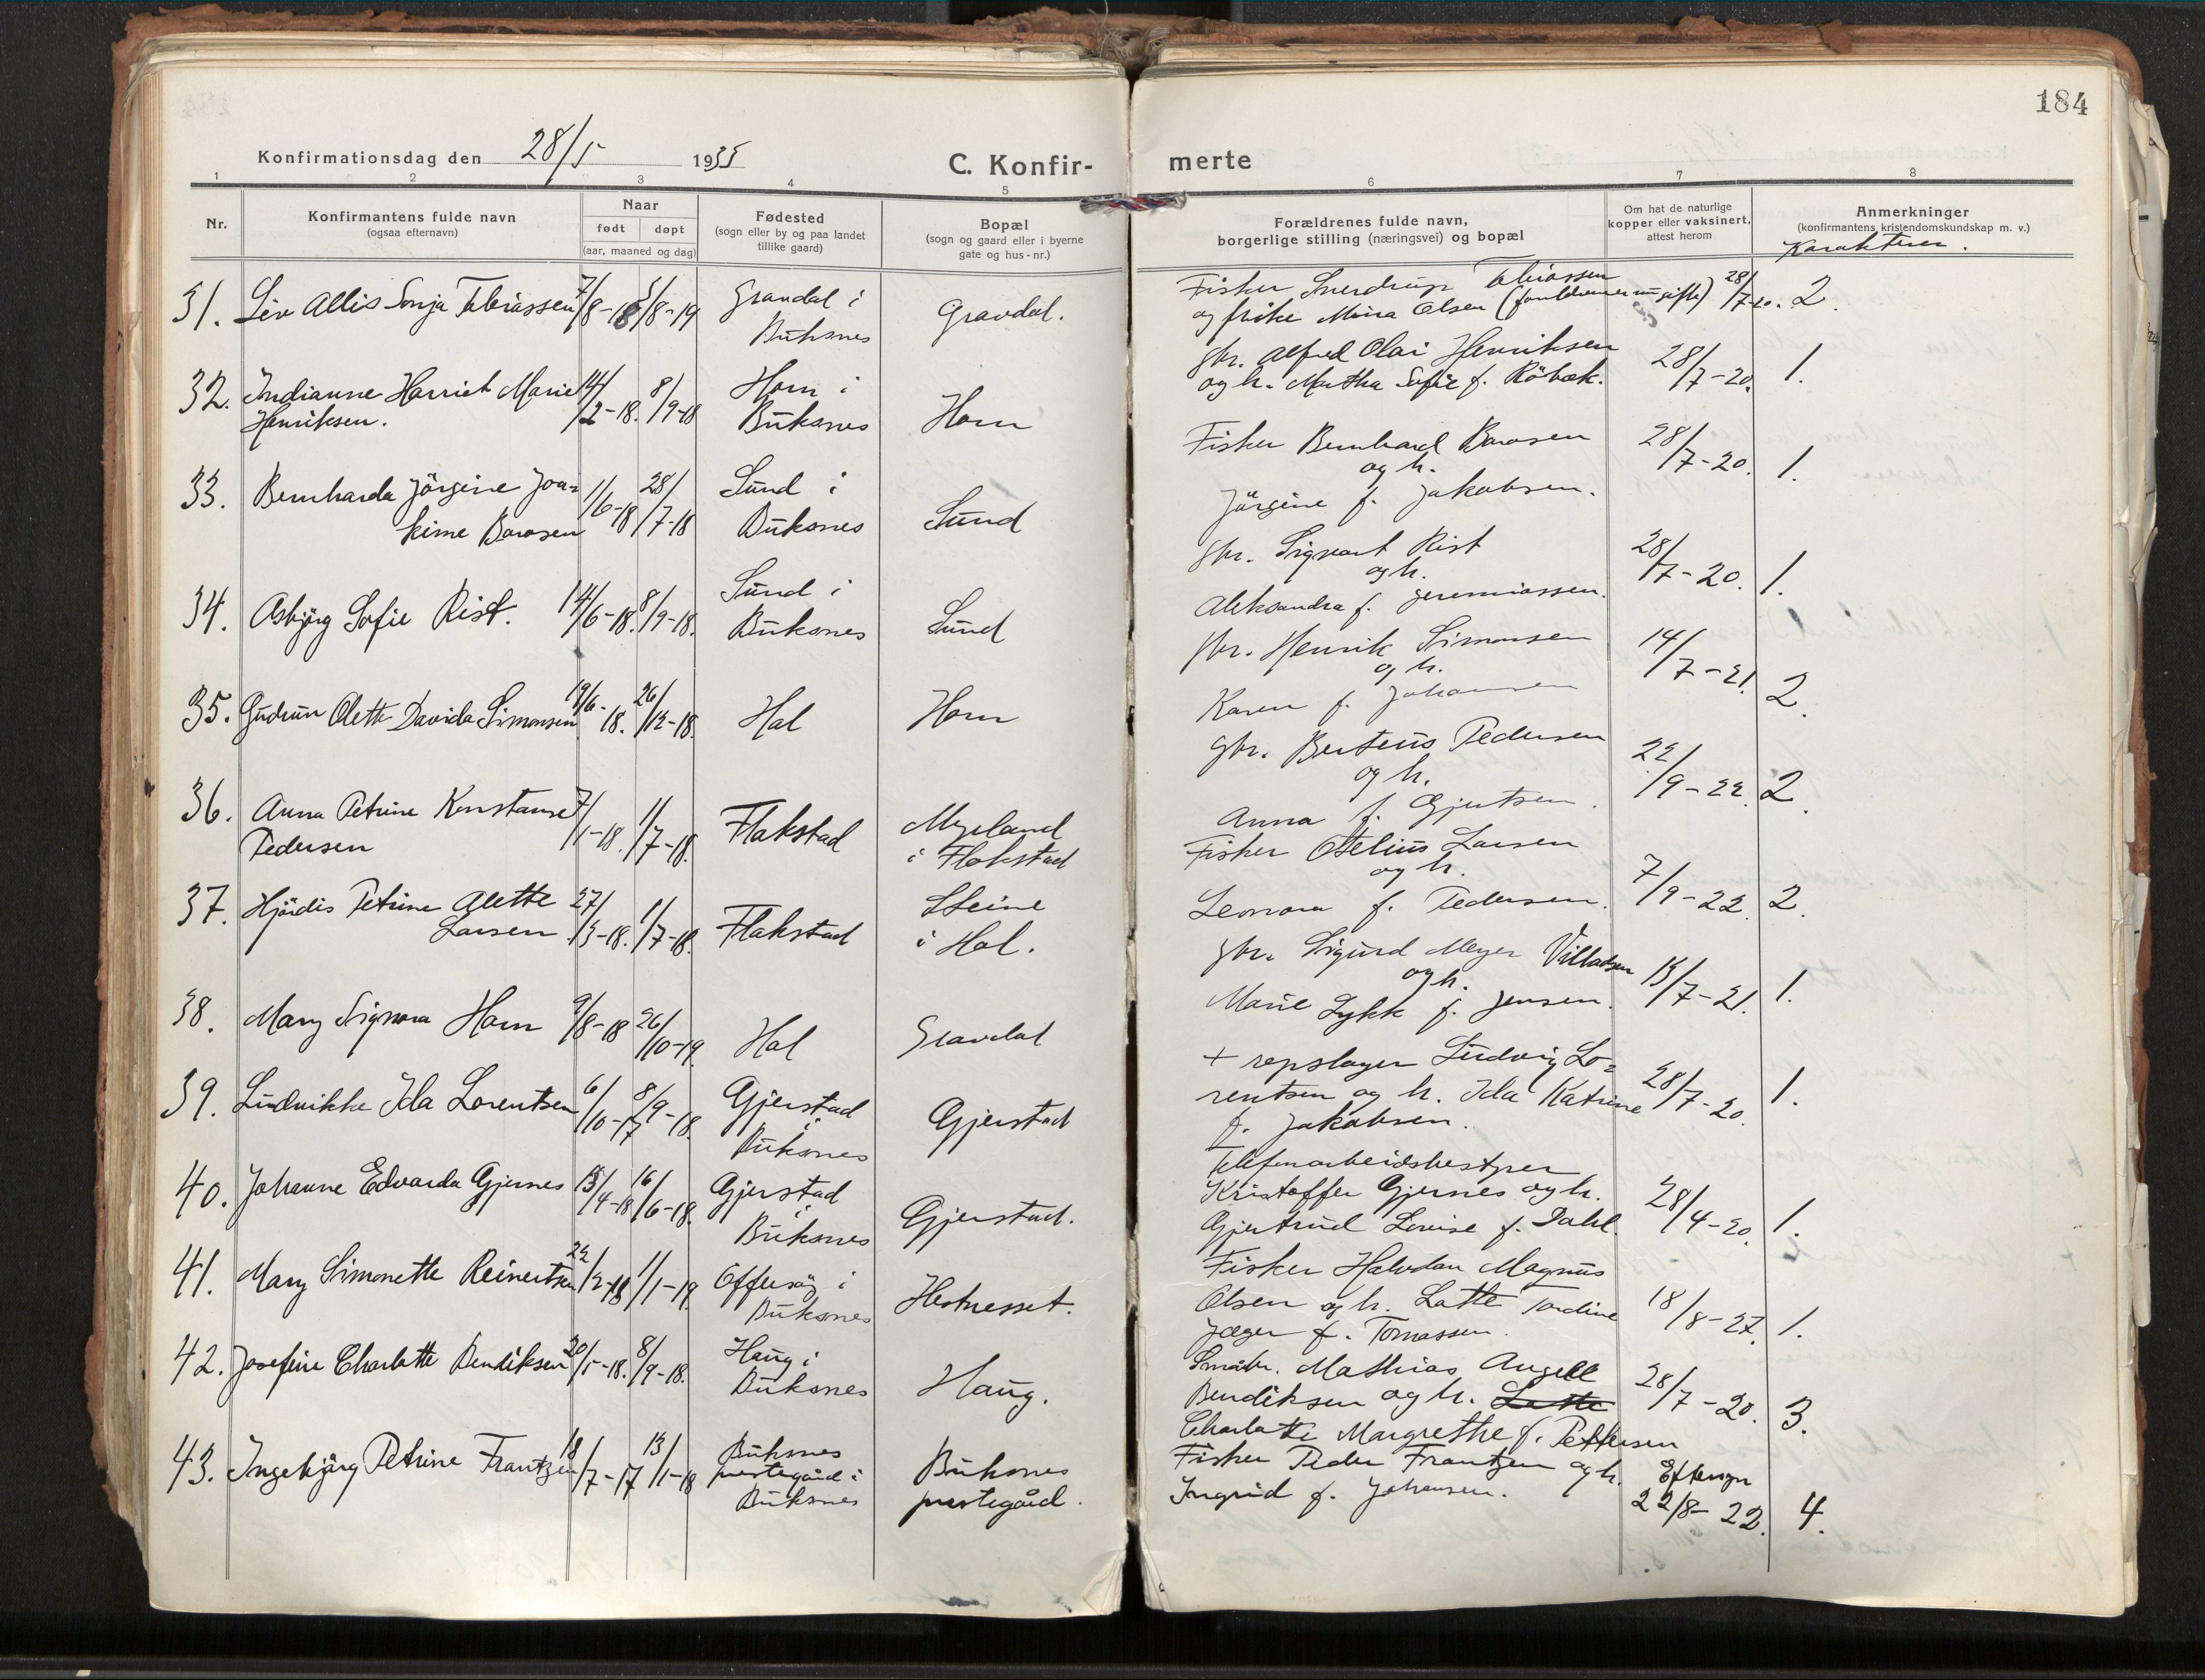 184
Konfirmationsdag den 28/5 1933
C. Konfir-
merte
1 2 3 4 5 6 7 8
Nr.
Konfirmantens fulde navn
(ogsaa efternavn)
Naar
født døpt
(aar, maaned og dag)
Fødested
(sogn eller by og paa landet
tillike gaard)
Bopæl
(sogn og gaard eller i byerne
gate og hus-nr.)
Forældrenes fulde navn,
borgerlige stilling (næringsvei) og bopæl
Om hat de naturlige
kopper eller vaksinert,
attest herom
Anmerkninger
(konfirmantens kristendomskundskap m. v.)
Karakterer.
31. Liv Allis Sonja Tobiassen 7/8-18 3/8-19 Gravdal i
Buksnes
Gravdal.
Fisker Sverdrup Tobiassen
og frøken Mina Olsen (foreldrene ugifte) 28/7-20. 2.
32. Indianne Harriet Marie
Henriksen.
14/2-18. 8/9-18
Horn i
Buksnes
Horn
gbr. Alfred Olai Henriksen
og h. Martha Sofie f. Röbæk.
28/7-20. 1.
33. Bernharda Jörgine Joa-
kime Barosen
1/6-18 28/7-18
Sund i
Buksnes
Sund
Fisker Bernhard Barosen
og h.
Jörgine f. Jakobsen.
28/7-20. 1.
34. Asbjörg Sofie Rist. 14/6-18. 8/9-18.
Sund i
Buksnes
Sund
gbr. Sigvart Rist
og h.
Aleksandra f. Jeremiassen.
28/7-20. 1.
35. Gudrun Olette Davida Simonsen 19/6-18. 26/12-18. Hol Horn
gbr. Henrik Simonsen
og h.
Karen f. Johansen
14/7-21. 2.
36. Anna Petrine Konstanse
Pedersen
7/1-18. 1/7-18.
Flakstad
Myrland
i Flakstad
gbr. Berteus Pedersen
og h.
Anna f. Gjertsen.
22/9-22. 2.
37. Hjördis Petrine Alette
Larsen
27/3-18. 1/7-18.
Flakstad
Steine
i Hol.
Fisker Otelius Larsen
og h.
Leonora f. Pedersen.
7/9-22. 2.
38. Mary Signora Horn 9/8-18 26/10-19. Hol Gravdal
gbr. Sigurd Meyer Villadsen
og h.
Marie Lykk f. Jensen.
15/7-21. 1.
39. Ludvikke Ida Lorentsen 6/10-17 8/9-18.
Gjerstad
i
Buksnes
Gjerstad
+ repslager Ludvig Lo-
rentsen og h. Ida Katrine
f. Jakobsen.
28/7-20. 1.
40. Johanne Edvarda Gjernes 13/4-18 16/6-18.
Gjerstad
i
Buksnes
Gjerstad.
Telefonarbeidsbestyrer
Kristoffer Gjernes og h.
Gjertrud Lovise f. Dahl.
28/4-20. 1.
41. Mary Simonette Reinertsen 22/2-18 1/1-19.
Offersöy i
Buksnes
Hestnesset.
Fisker Halvdan Magnus
Olsen og h. Lotte Tordine
Jæger f. Tomassen.
18/8-27. 1.
42. Josefine Charlotte Bendiksen 20/5-18. 8/9-18.
Haug i
Buksnes
Haug.
Småbr. Mathias Angell
Bendiksen og h. Lotte
Charlotte Margrethe f. Pettersen
28/7-20. 3.
43. Ingebjörg Petrine Frantzen 18/7-17 13/1-18
Buksnes
prestegård i
Buksnes
Buksnes
prestegård.
Fisker Peder Frantzen og h.
Ingrid f. Johansen.
Eftersyn
22/8-22. 4.